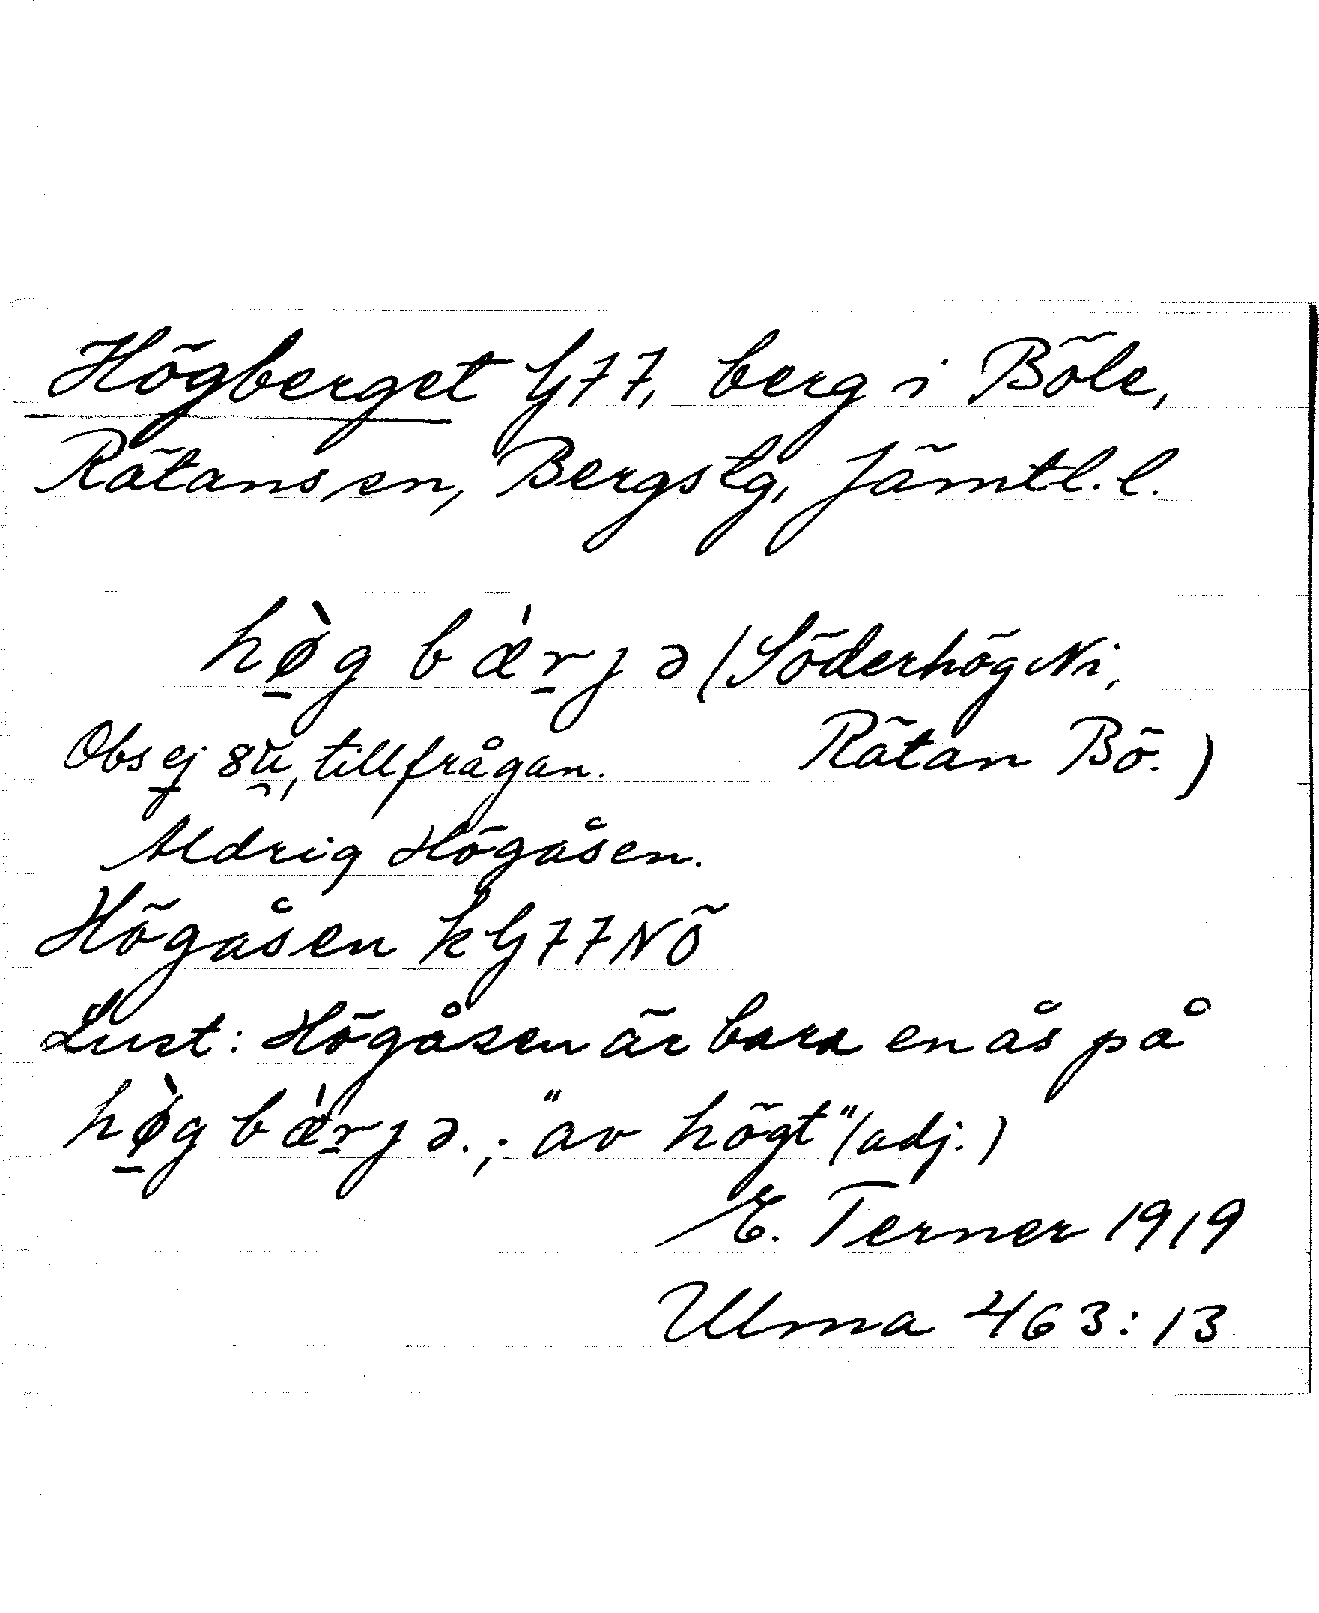 Högberget G77, berg i Böle,
Rätans sn, Bergs tg, Jämtl. l.
hø̀g bæ̀rjə (Söderhög Ni,
Obs ej tillfrågan. Rätan Bö.)
Aldrig Högåsen.
Högåsen k G77NÖ
Lust: Högåsen är bara en ås på
hø̀g bæ̀rjə.; "av högt" (adj.)
E. Terner 1919
Ulma 463:13